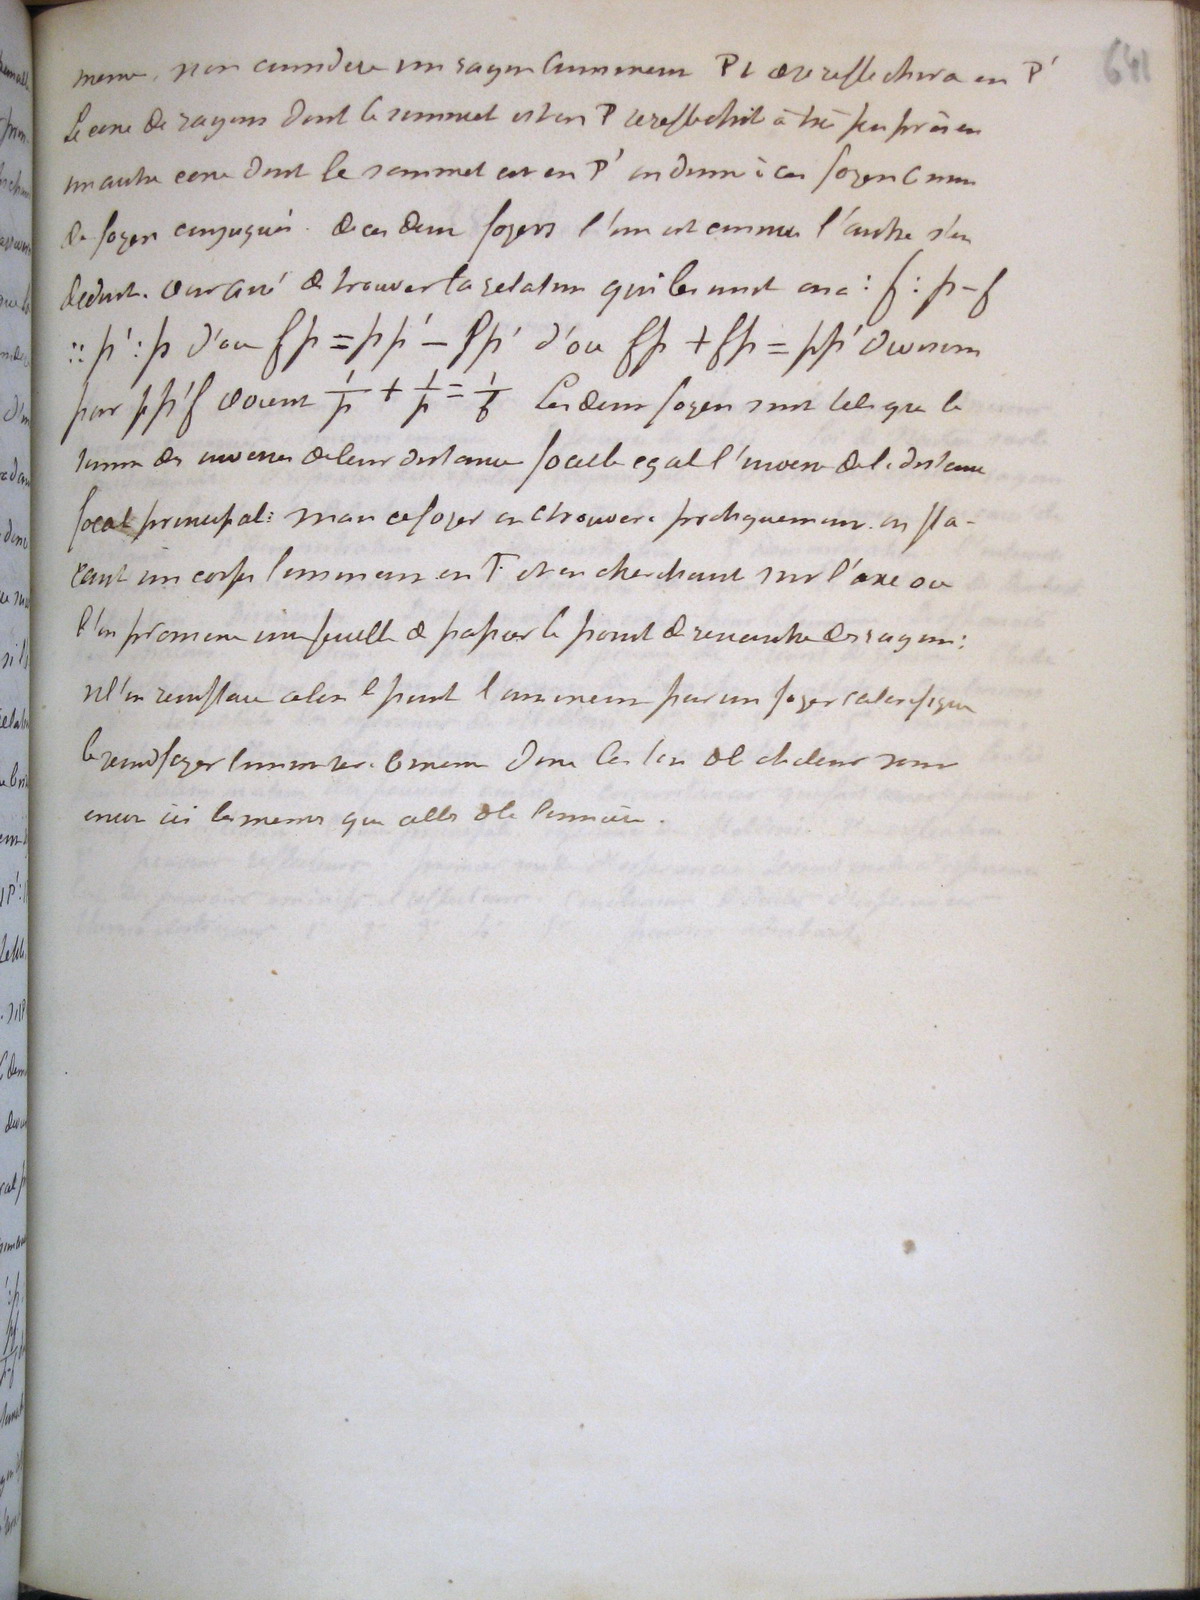 641
meme, si on considere un rayon lumineux P1 il se reflechira en P'
Le cone de rayons dont le sommet est en P se reflechit à très peu près en
un autre cone dont le sommet est en P' on donne à ces foyers le nom
de foyers conjugués. de ces deux foyers l'un est connu l'autre s'en
deduit. de trouver la relation qui les unit on a : f : p - f
:: p' : p d'ou fp = pp' - fp' d'ou fp + fp = pp' divisons
par pp'f il vient 1/p + 1/p = 1/f Les deux foyers sont tels que la
somme des inverses de leur distance focale egal l'inverse de la distance
focale principal: mais ce foyer on le trouvera pratiquement en pla-
çant un corps lumineux en P et en cherchant sur l'axe ou
l'on promene une feuille de papier le point de rencontre des rayons:
si l'on remplace alors le point lumineux par un foyer calorifique
le second foyer lumineux sera le meme donc les lois de la chaleur sont
encore ici les memes que celles de la lumière.